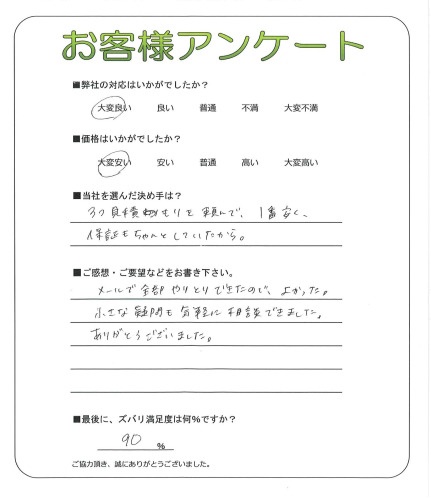 お客様アンケート
■弊社の対応はいかがでしたか？
大変良い 良い 普通 不満 大変不満
■価格はいかがでしたか？
大変安い 安い 普通 高い 大変高い
■当社を選んだ決め手は？
3つ見積もりを頼んで、1番安く、
保証もちゃんとしていたから。
■ご感想・ご要望などをお書き下さい。
メールで全部やりとりできたので、よかった。
小さな疑問も気軽に相談できました。
ありがとうございました。
■最後に、ズバリ満足度は何%ですか？
90 %
ご協力頂き、誠にありがとうございました。